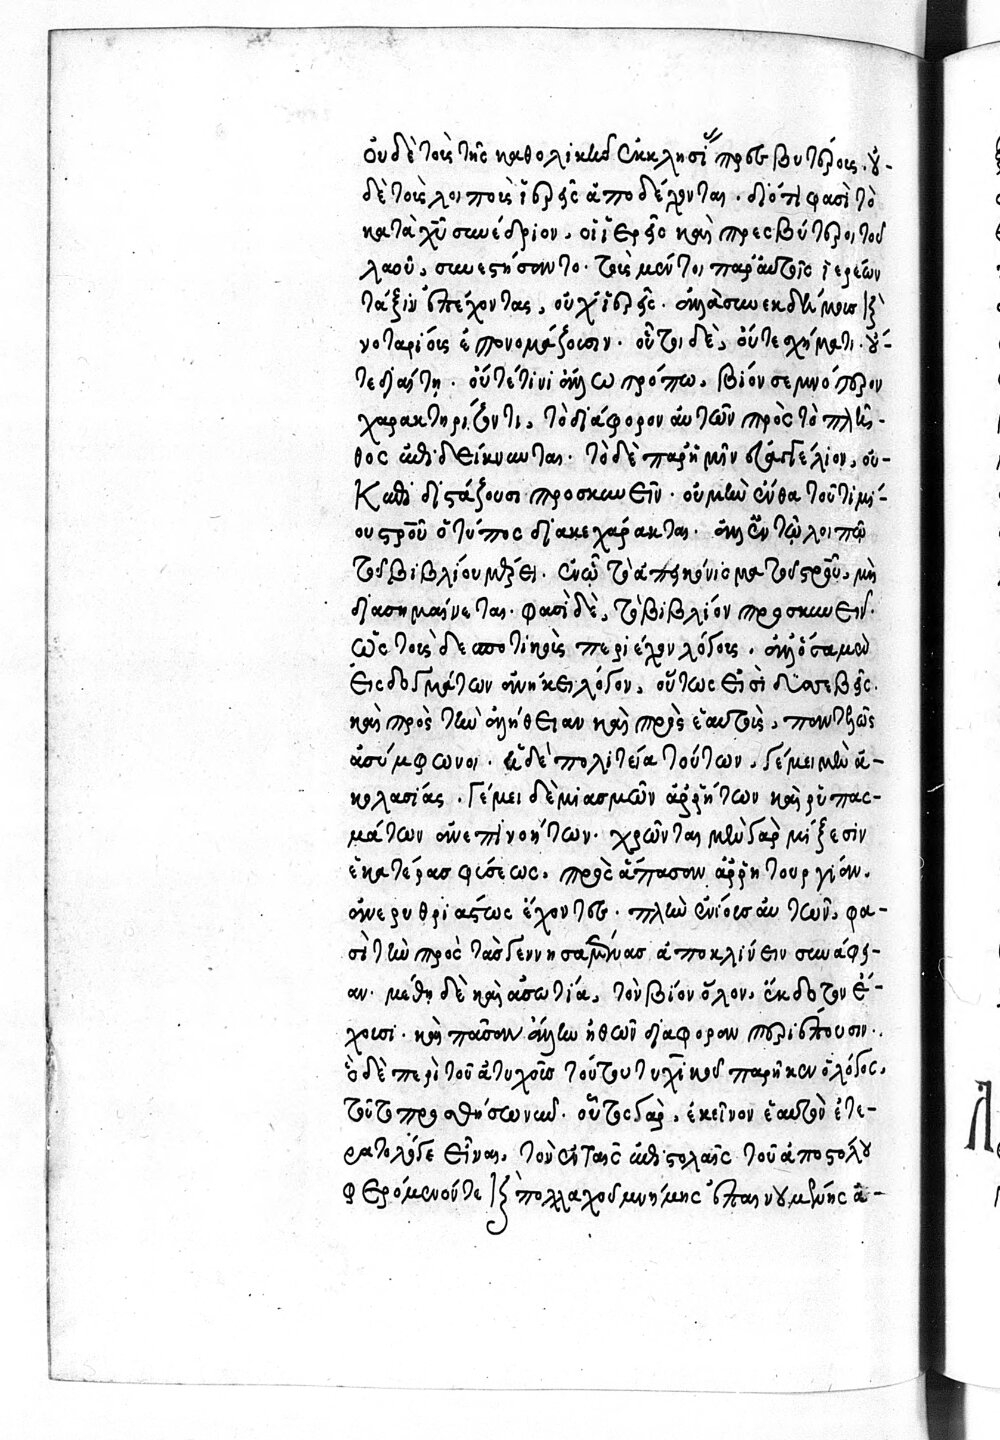 οὐδὲ τοῖς τῆς καθολικῆς ἐκκλησίας πρεσβυτέροις. οὐ-
δὲ τοῖς λοιποῖς ἱερεῖς ἀποδέχονται. διότι φασὶ τὸ
κατὰ χυ συνέδριον, οἱ ἱερεῖς καὶ πρεσβύτεροι τοῦ
λαοῦ, συνεστήσαντο. τοὺς μέντοι παρ' αὐτοῖς ἱερέων
τάξιν ἐπέχοντας, οὐχ ἱερεῖς. ἀλλὰ συνεκδήμους καὶ
νοταρίους ἐπονομάζουσιν. οὗτοι δὲ, οὔτε σχήματι. οὔ-
τε διαίτῃ. οὔτέ τινι ἄλλω τρόπω, βίον σεμνότερον
χαρακτηρίζοντι, τὸ διάφορον αὐτῶν πρὸς τὸ πλῆ-
θος ἐπιδείκνυνται. τὸ δὲ παρ' ἡμῖν εὐαγγέλιον, οὐ-
κ ἄλλη διατάξουσι προσκυνεῖν. οὐ μὴν ἔνθα τοῦ τιμί-
ου σταυροῦ ὁ τύπος διακεχάρακται. ἀλλ' ἐν τῷ λοιπῷ
τοῦ βιβλίου μέρει. ἐν ᾧ τὸ ἀπεικόνισμα τοῦ σταυροῦ, μὴ
διασημαίνεται. φασὶ δὲ, τὸ βιβλίον προσκυνεῖν.
ὡς τοὺς δεσποτικοὺς περιέχον λόγους. ἀλλ' ὅσα μὲν
εἰς δογμάτων ἀνήκει λόγον, οὕτως εἰσὶ δυσσεβεῖς.
καὶ πρὸς τὴν ἀλήθειαν καὶ πρὸς ἑαυτοὺς, παντελῶς
ἀσύμφωνοι. ἡ δὲ πολιτεία τούτων, γέμει μὲν ἀ-
κολασίας. γέμει δὲ μιασμῶν ἀρρήτων καὶ ῥυπασ-
μάτων ἀνεπινοήτων. χρῶνται μὲν γὰρ μίξεσιν
ἑκατέρας φύσεως, πρὸς ἅπασαν ἀρρητουργίαν.
ἀνερυθριάστως ἔχοντες. πλὴν ἐνίους αὐτῶν, φα-
σὶ τὴν πρὸς τὰς γεννησαμένας ἀποκλίνειν συνάφει-
αν. μέθη δὲ καὶ ἀσωτία, τὸν βίον ὅλον, ἔκδοτον ἔ-
χουσι. καὶ πᾶσαν ἄλλην ἠθῶν διαφορὰν περιέπουσιν.
ὃ δὲ περὶ τοῦ ἀτυχοῦς τούτου τυχικοῦ παρῆκεν ὁ λόγος,
τοῦτο προσθήσωμεν. οὗτος γὰρ, ἐκεῖνον ἑαυτὸν ἐτε-
ρατολόγει εἶναι, τὸν ἐν ταῖς ἐπιστολαῖς τοῦ ἀποστόλου
φερόμενόν τε καὶ πολλαχοῦ μνήμης ἐπαινουμένης ἀ-